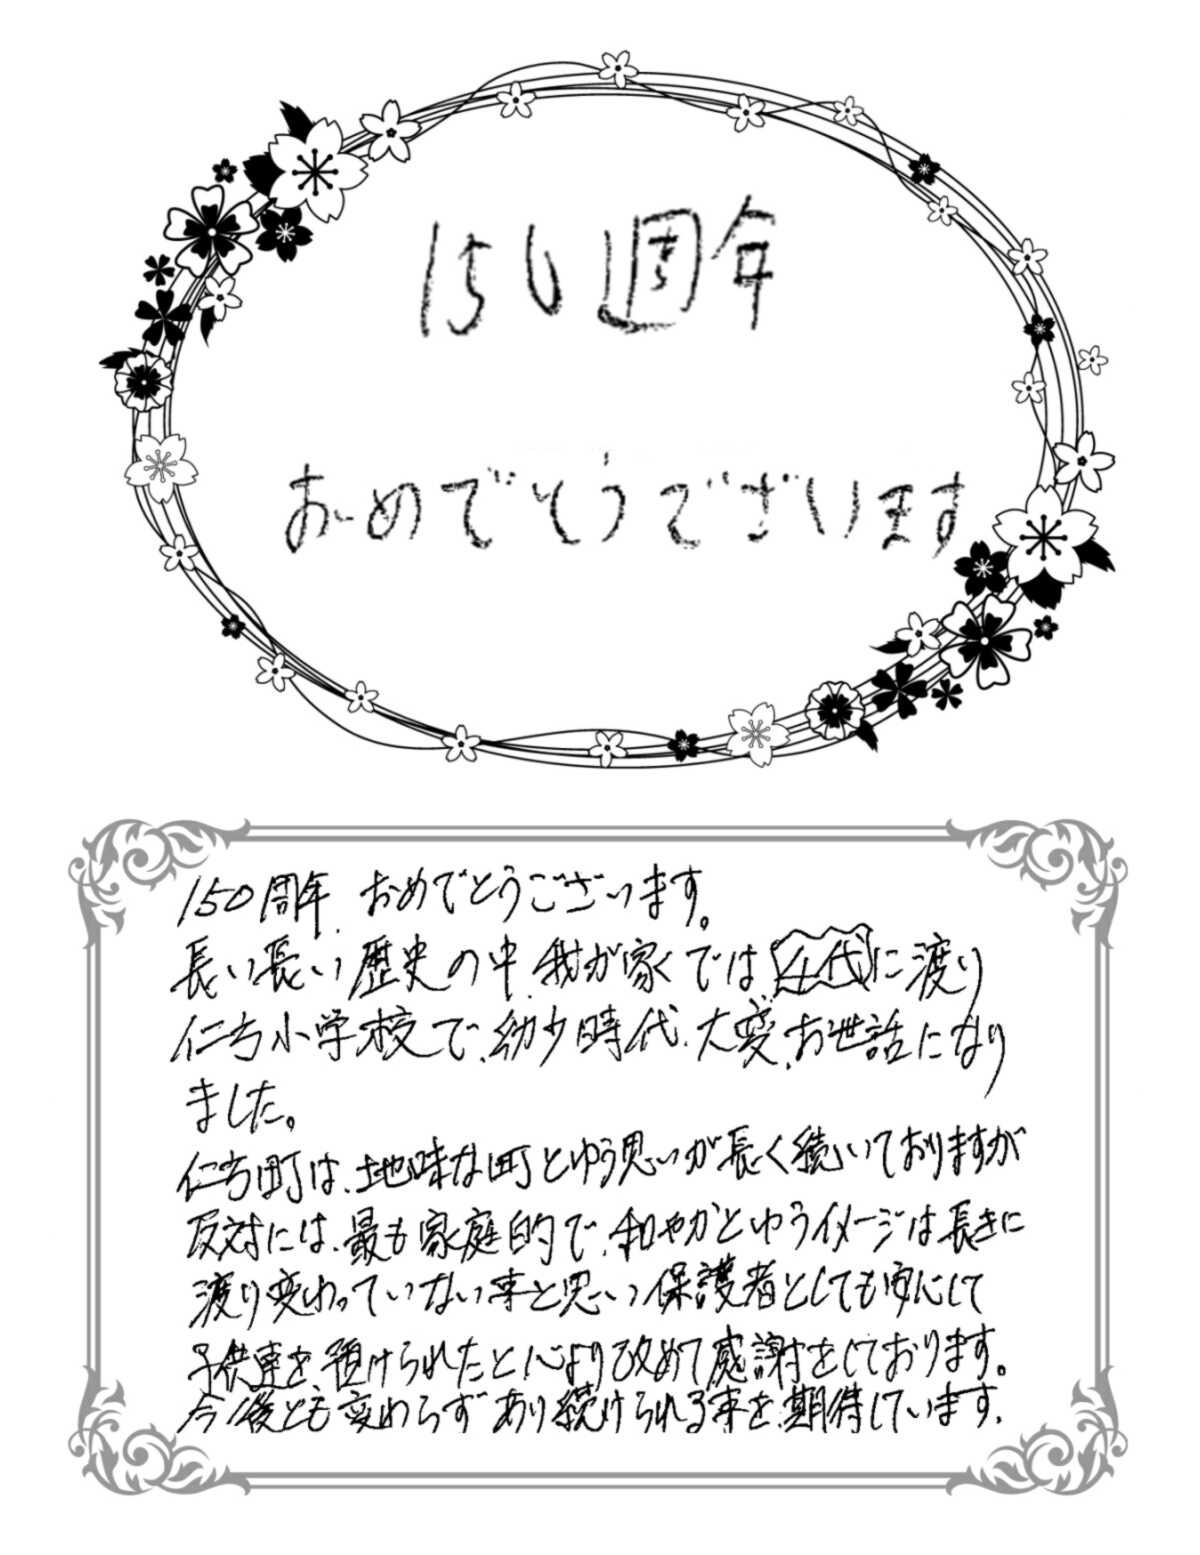 150週年
おめでとうございます
150周年、おめでとうございます。
長い長い歴史の中、我が家くでは4代に渡り
仁方小学校で、幼少時代、大変、お世話になり
ました。
仁方町は、地味な町とゆう思いが長く続いておりますが
反対には、最も家庭的で、和やかとゆうイメージは長きに
渡り変わっていない事と思い、保護者としても安にして
子供達を、預けられたと心より改めて感謝をしております。
今後とも変わらずあり続けられる事を、期待しています。